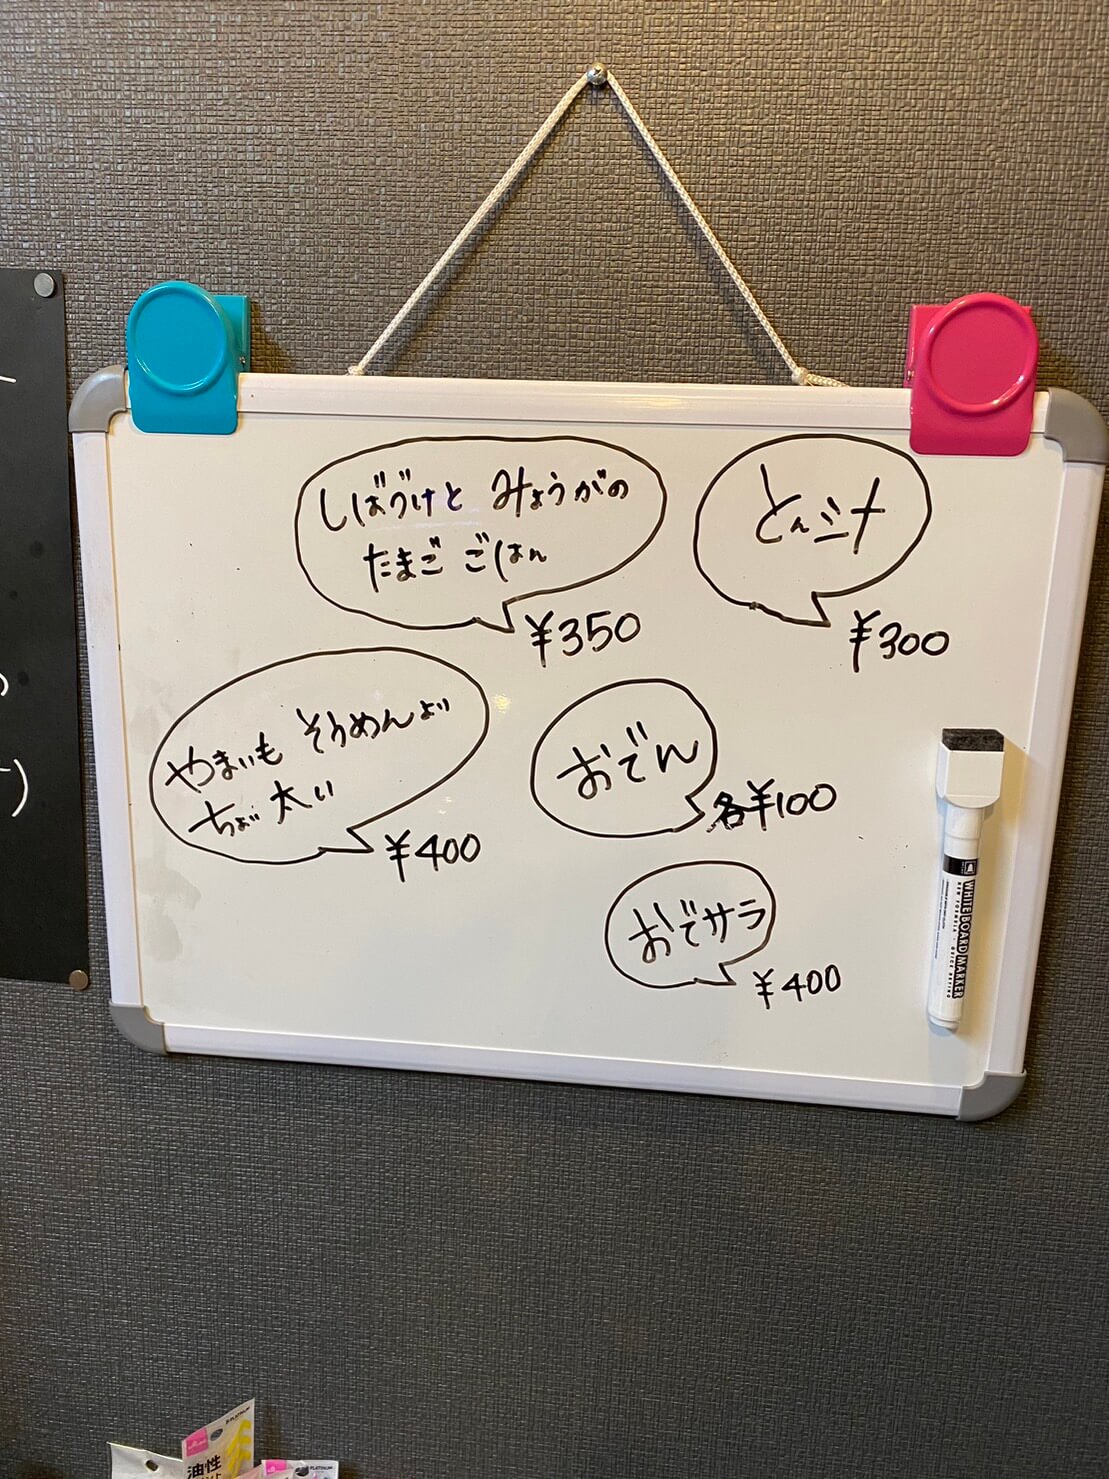 しばづけと みょうがの
たまご ごはん
¥350
とん汁
¥300
やまいも そうめんより
ちょい 太い
¥400
おでん
各¥100
おでサラ
¥400
WHITE BOARD MARKER
油性